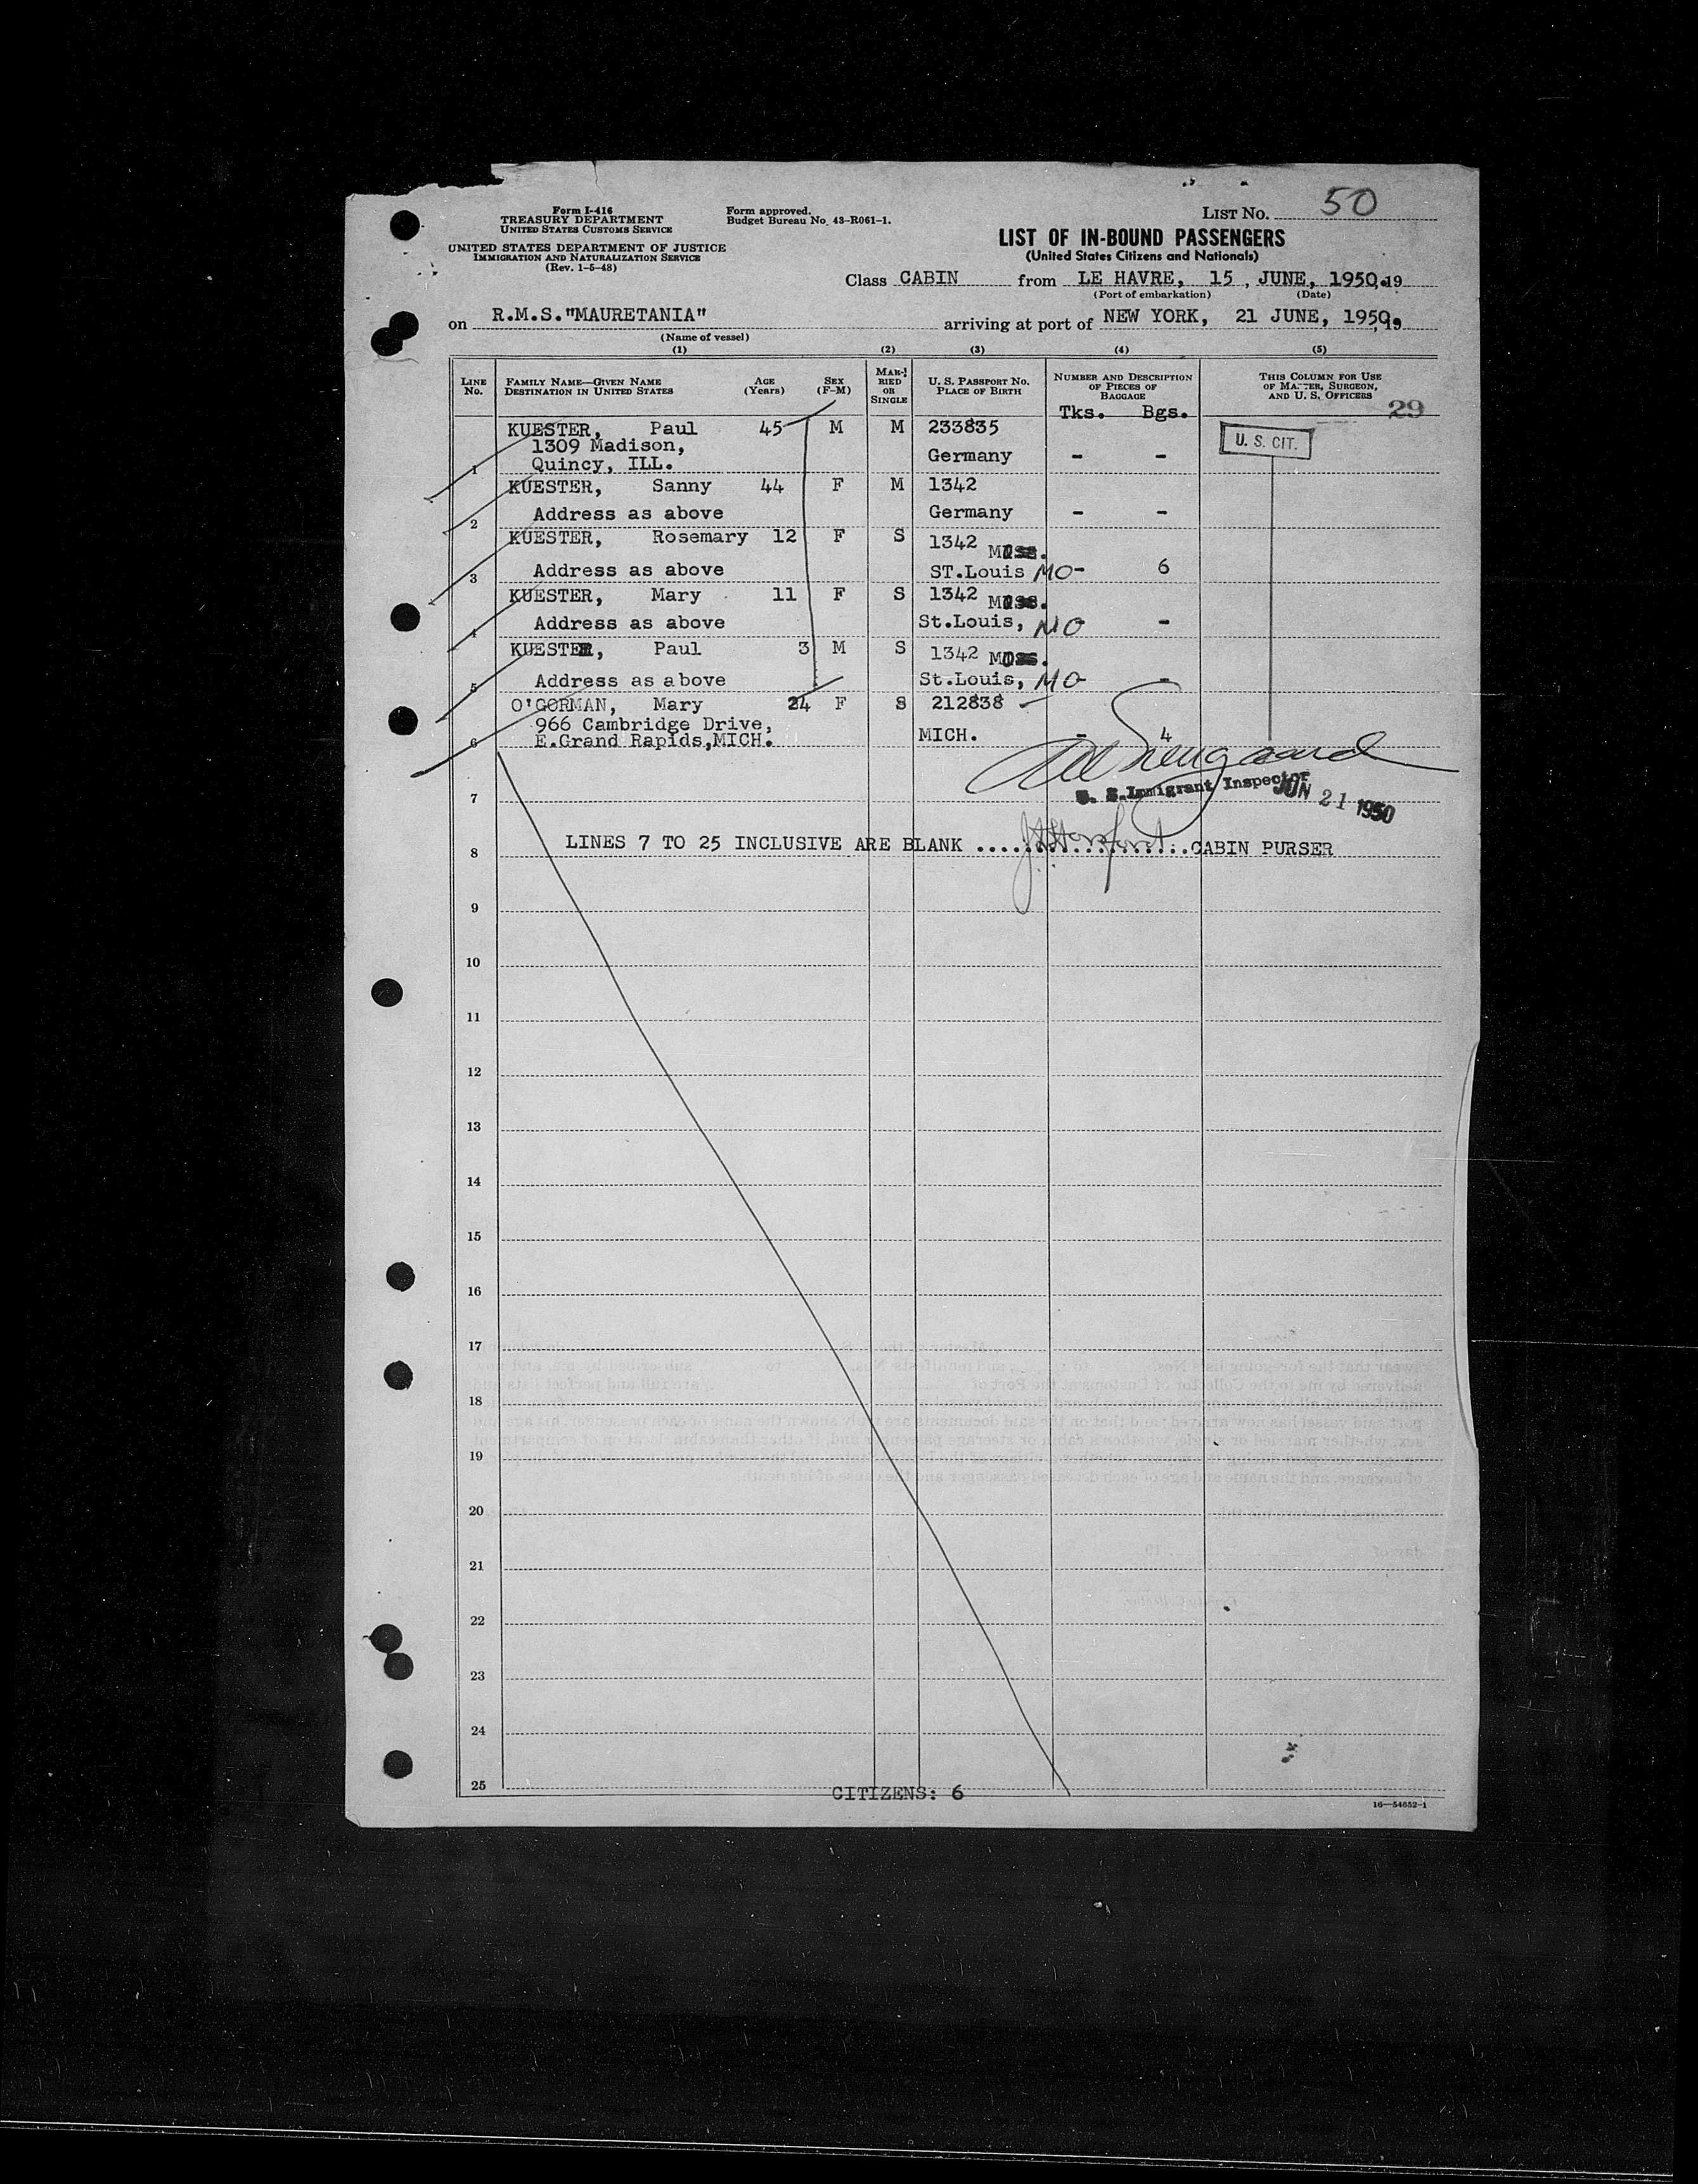 Form I-416
TREASURY DEPARTMENT
UNITED STATES CUSTOMS SERVICE
UNITED STATES DEPARTMENT OF JUSTICE
IMMIGRATION AND NATURALIZATION SERVICE
(Rev. 1-5-48)
Form approved.
Budget Bureau No. 43-R061-1.
LIST No. 50
LIST OF IN-BOUND PASSENGERS
(United States Citizens and Nationals)
Class CABIN from LE HAVRE, 15, JUNE, 1950, 19
(Port of embarkation) (Date)
on R.M.S."MAURETANIA" arriving at port of NEW YORK, 21 JUNE, 1950, 19
(Name of vessel)
(1) (2) (3) (4) (5)
LINE No. FAMILY NAME—GIVEN NAME DESTINATION IN UNITED STATES AGE (Years) SEX (F-M) MARRIED OR SINGLE U. S. PASSPORT No. PLACE OF BIRTH NUMBER AND DESCRIPTION OF PIECES OF BAGGAGE THIS COLUMN FOR USE OF MASTER, SURGEON, AND U. S. OFFICERS
Tks. Bgs. 29
KUESTER, Paul 45 M M 233835 U. S. CIT.
1309 Madison,
Germany - -
1 Quincy, ILL.
KUESTER, Sanny 44 F M 1342
2 Address as above Germany - -
KUESTER, Rosemary 12 F S 1342
3 Address as above ST.Louis MO - 6
KUESTER, Mary 11 F S 1342
4 Address as above St.Louis, MO -
KUESTER, Paul 3 M S 1342
5 Address as above St.Louis, MO -
O'GORMAN, Mary 24 F S 212838
966 Cambridge Drive,
6 E.Grand Rapids,MICH. MICH. - 4
U. S. Immigrant Inspector
JUN 21 1950
7
8 LINES 7 TO 25 INCLUSIVE ARE BLANK ....................CABIN PURSER
9
10
11
12
13
14
15
16
17
18
19
20
21
22
23
24
25
CITIZENS: 6
16—54652-1